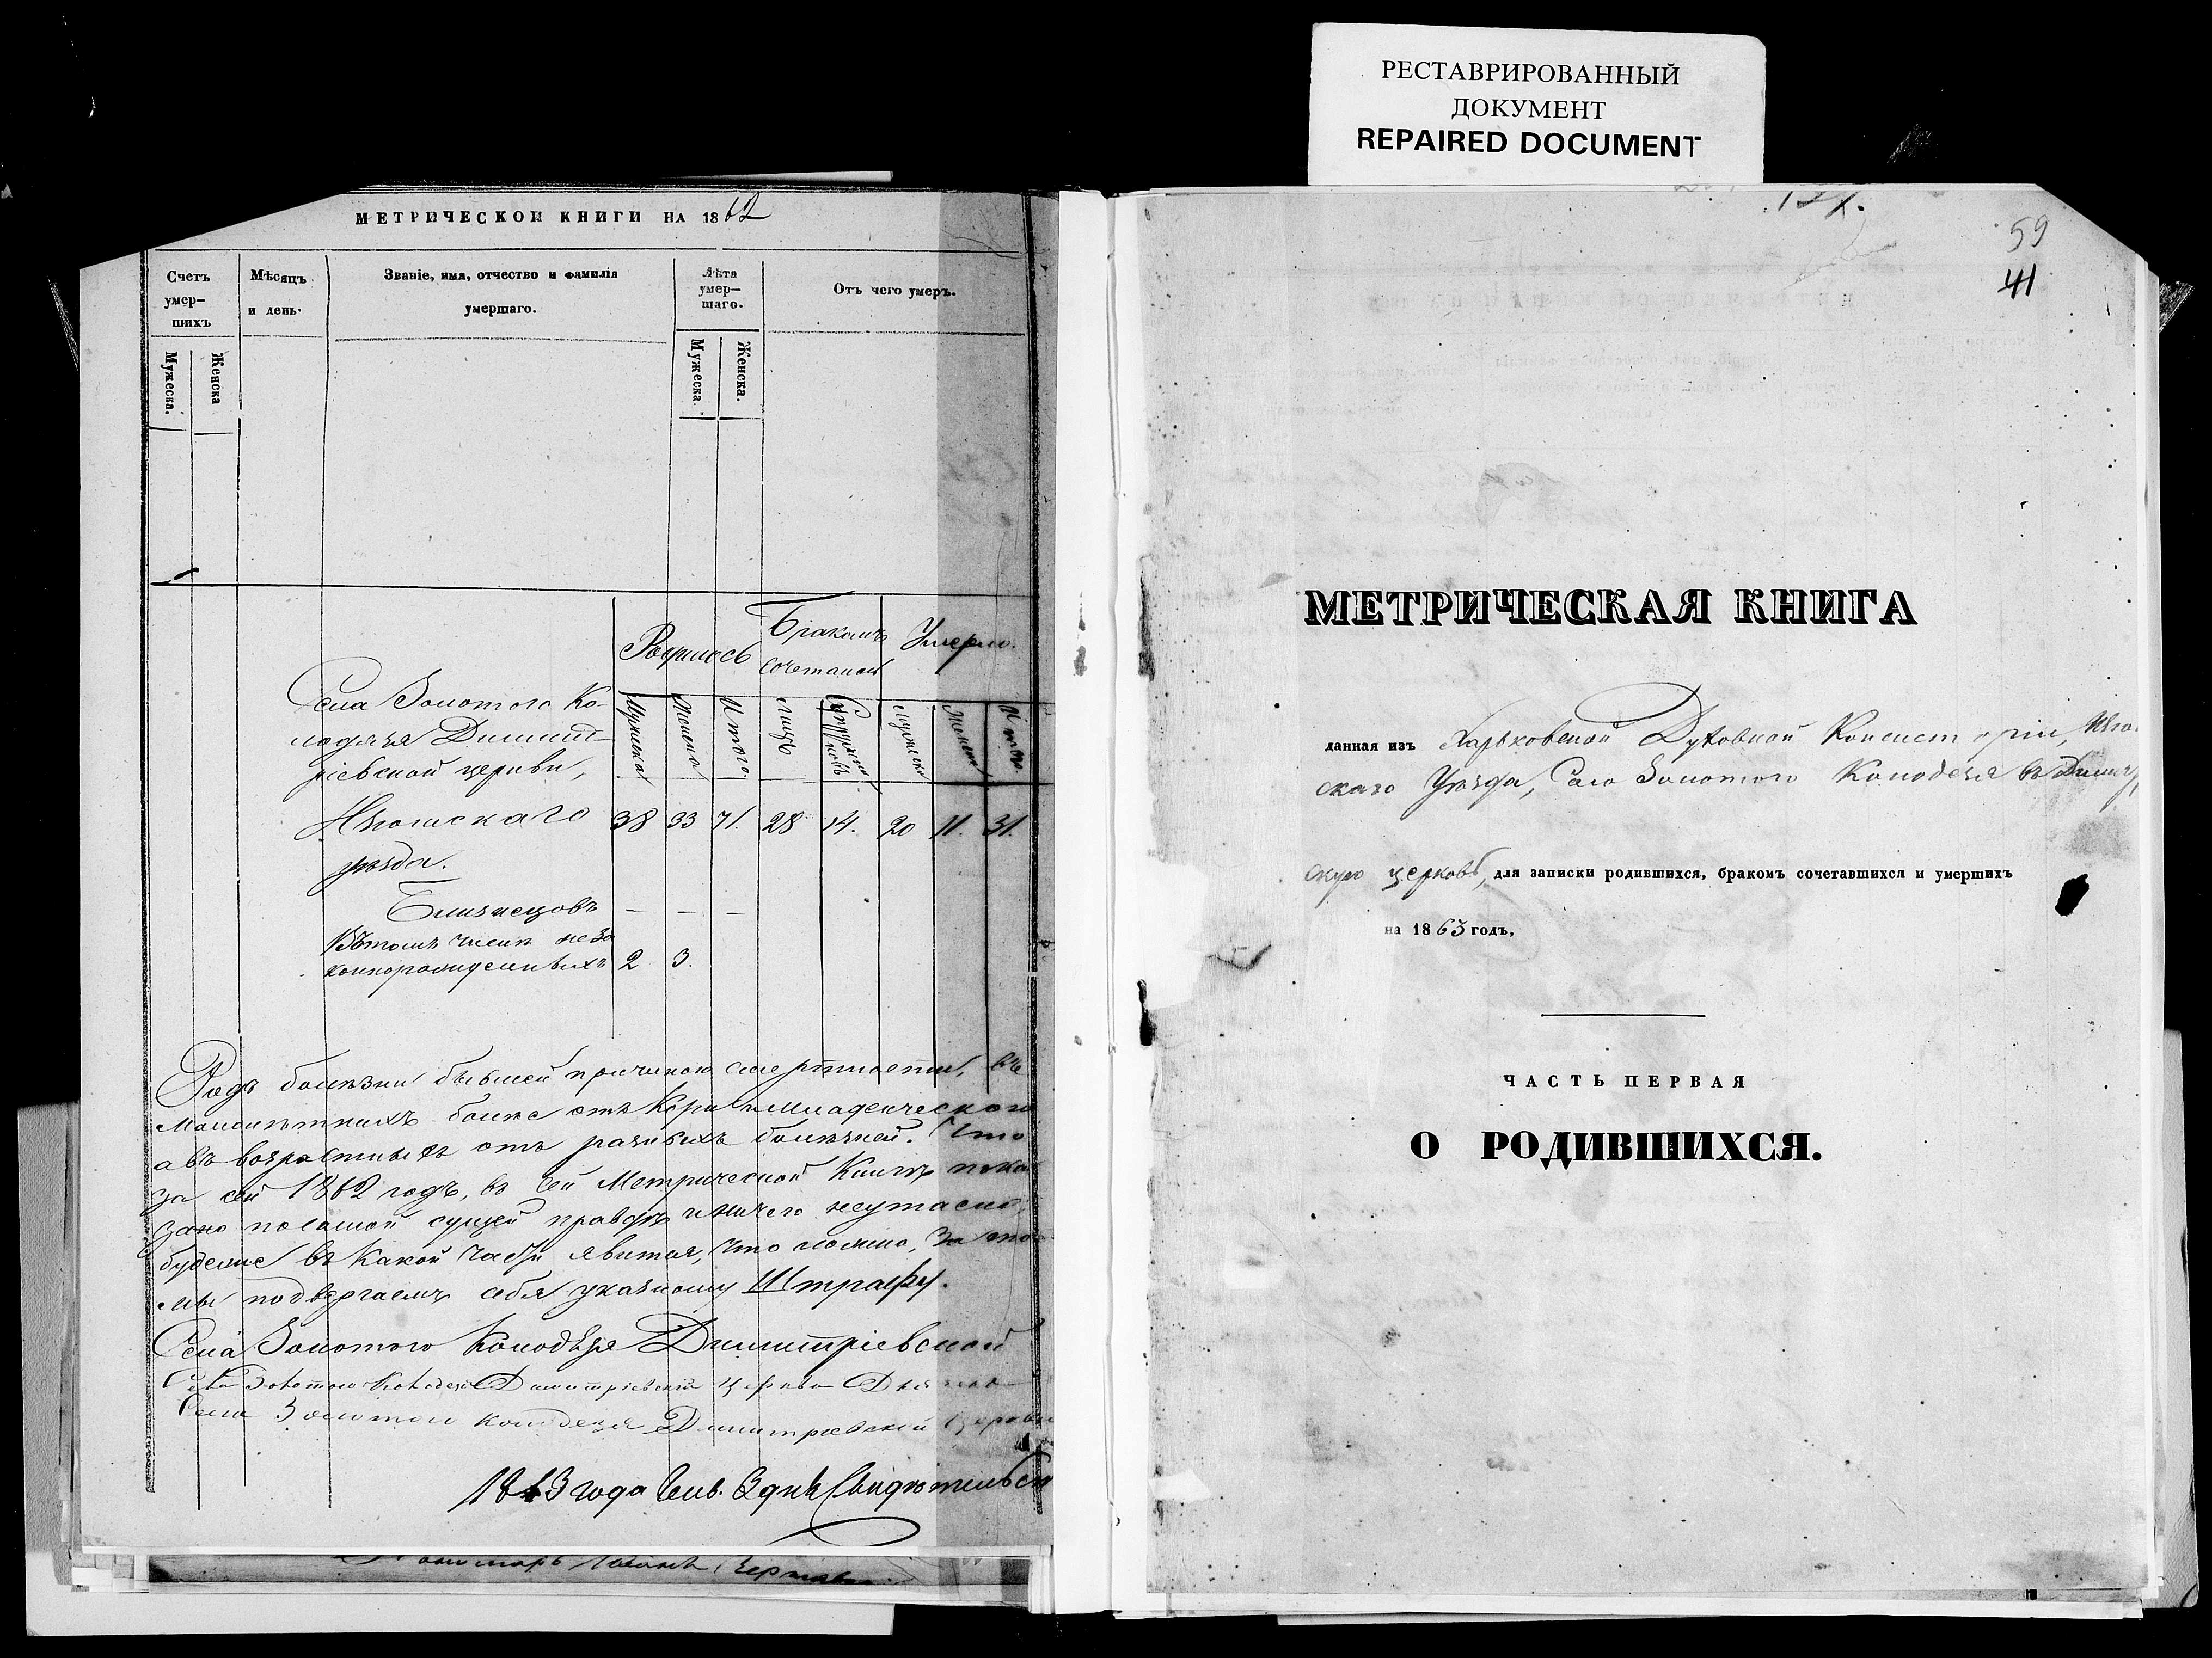 РЕСТАВРИРОВАННЫЙ
ДОКУМЕНТ
REPAIRED DOCUMENT
МЕТРИЧЕСКОЙ КНИГИ НА 1862
Счетъ умер-шихъ
Мѣсяцъ и день.
Званіе, имя, отчество и фамилія умершаго.
Лѣта умер-шаго.
Отъ чего умеръ.
Мужеска.
Женска
Мужеска.
Женска.
Родилось
Бракомъ сочетались
Умерло.
Мужеска
Женска
Итого
лицъ
Супружествъ
мужеска
Женска
Итого
Села Золотого Ко-
лодязя Димит-
ріевской церкви,
Изюмскаго 38 33 71. 28 14. 20 11. 31.
уѣзда.
Близнецовъ — — —
Въ томъ числѣ неза
коннорожденныхъ 2 3.
Родъ болѣзни бывшей причиною смертности, въ
малолѣтнихъ болѣе отъ Кори и младенческого
а въ возрастныхъ отъ разныхъ болѣзней. Что
за сей 1862 годъ, въ сей Метрической Книгѣ пока
зано по самой сущей правдѣ и ничего неутаено,
буде же въ какой части явится, что ложно, за то
мы подвергаемъ себя указному Штрафу.
Села Золотого Колодѣзя Димитріевской
Села Золотого Колодезя Димитріевской церкви
Села Золотого Колодезя Димитріевской Церкви
1863 года Генв. 3 дня Свидѣтельст
Пономарь
59
41
МЕТРИЧЕСКАЯ КНИГА
данная изъ Харьковской Духовной Консисторіи, Изюм
скаго Уѣзда, Села Золотого Колодезя въ Димит
скую церковь, для записки родившихся, бракомъ сочетавшихся и умершихъ
на 1863 годъ,
ЧАСТЬ ПЕРВАЯ
О РОДИВШИХСЯ.